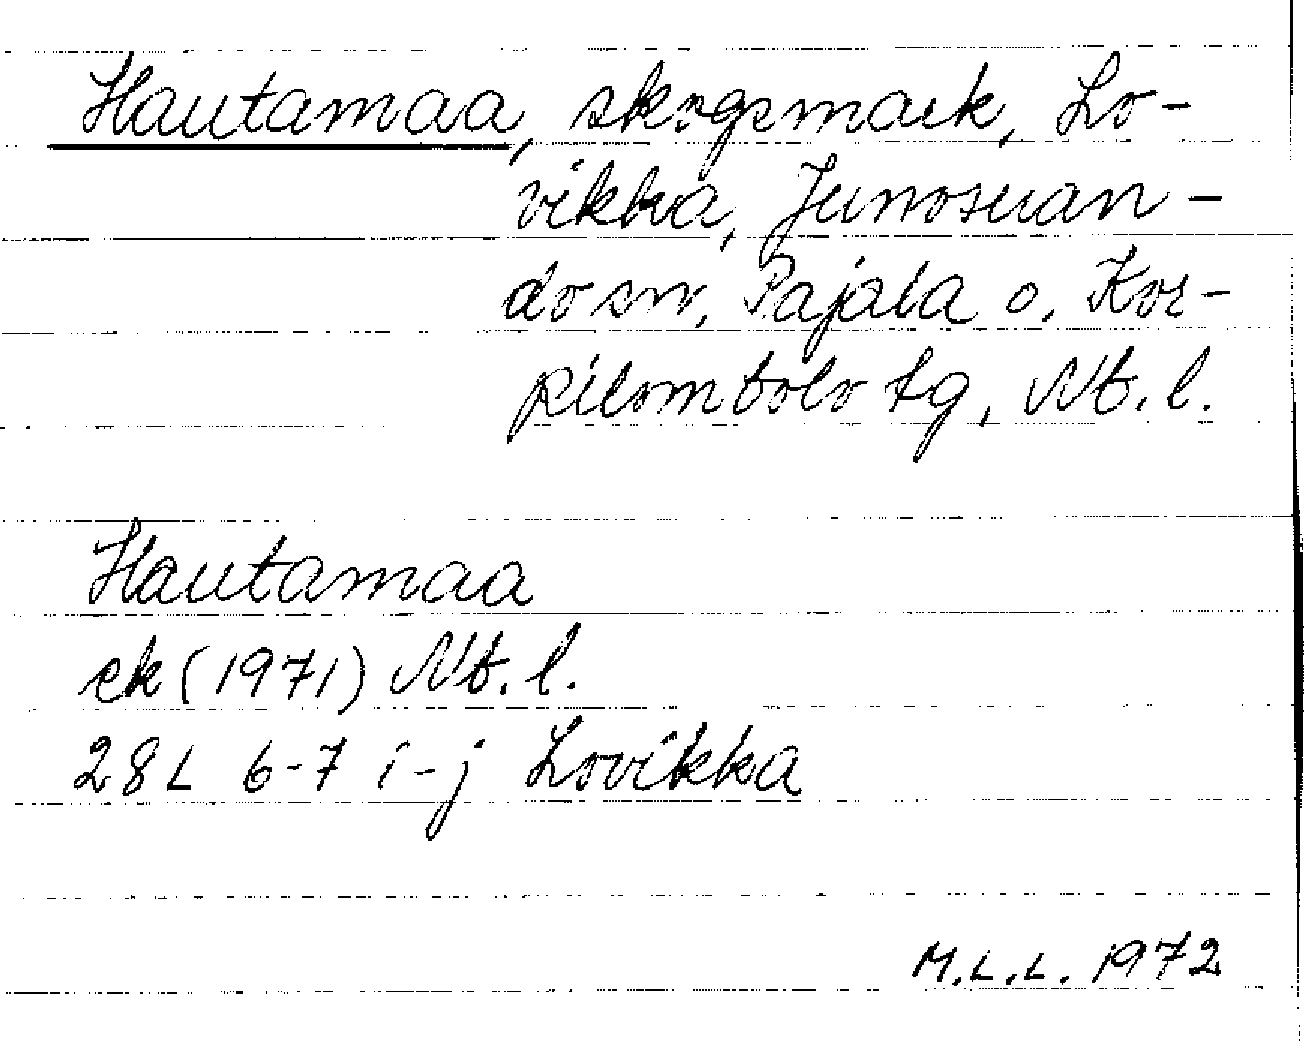 Hautamaa, skogsmark, Lo-
vikka, Junosuan-
do sn, Pajala o. Kor-
pilombolo tg, Nb. l.
Hautamaa
ek (1971) Nb. l.
28L 6-7 i-j Lovikka
M.L.L. 1972